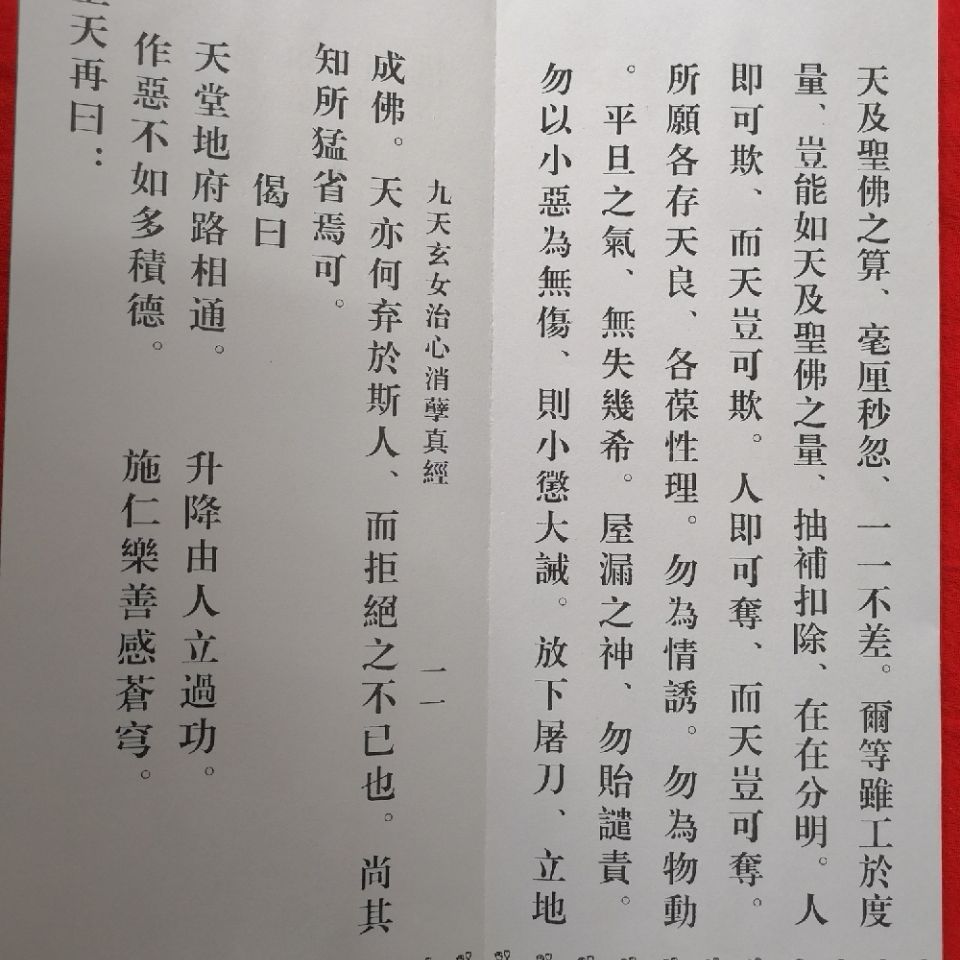 天及聖佛之算、毫厘秒忽、一一不差。爾等雖工於度
量、豈能如天及聖佛之量、抽補扣除、在在分明。人
即可欺、而天豈可欺。人即可奪、而天豈可奪。
所願各存天良、各葆性理。勿為情誘。勿為物動
。平旦之氣、無失幾希。屋漏之神、勿貽譴責。
勿以小惡為無傷、則小懲大誡。放下屠刀、立地
九天玄女治心消孽真經 一一
成佛。天亦何弃於斯人、而拒絕之不已也。尚其
知所猛省焉可。
偈曰
天堂地府路相通。 升降由人立過功。
作惡不如多積德。 施仁樂善感蒼穹。
天再曰：